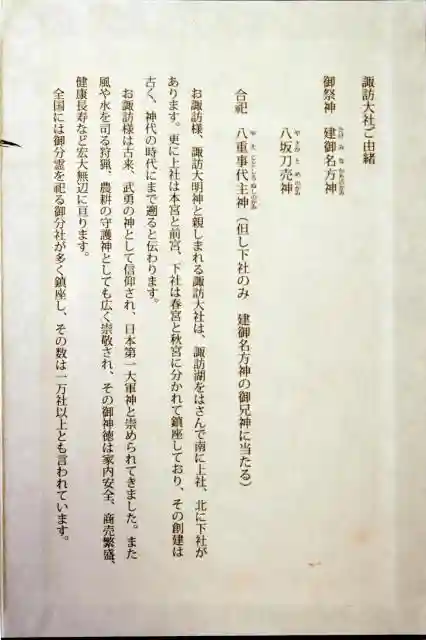 諏訪大社ご由緒
御祭神 建御名方神
八坂刀売神
合祀 八重事代主神（但し下社のみ 建御名方神の御兄神に当たる）
お諏訪様、諏訪大明神と親しまれる諏訪大社は、諏訪湖をはさんで南に上社、北に下社が
あります。更に上社は本宮と前宮、下社は春宮と秋宮に分かれて鎮座しており、その創建は
古く、神代の時代にまで遡ると伝わります。
お諏訪様は古来、武勇の神として信仰され、日本第一大軍神と崇められてきました。また
風や水を司る狩猟、農耕の守護神としても広く崇敬され、その御神徳は家内安全、商売繁盛、
健康長寿など宏大無辺に亘ります。
全国には御分霊を祀る御分社が多く鎮座し、その数は一万社以上とも言われています。